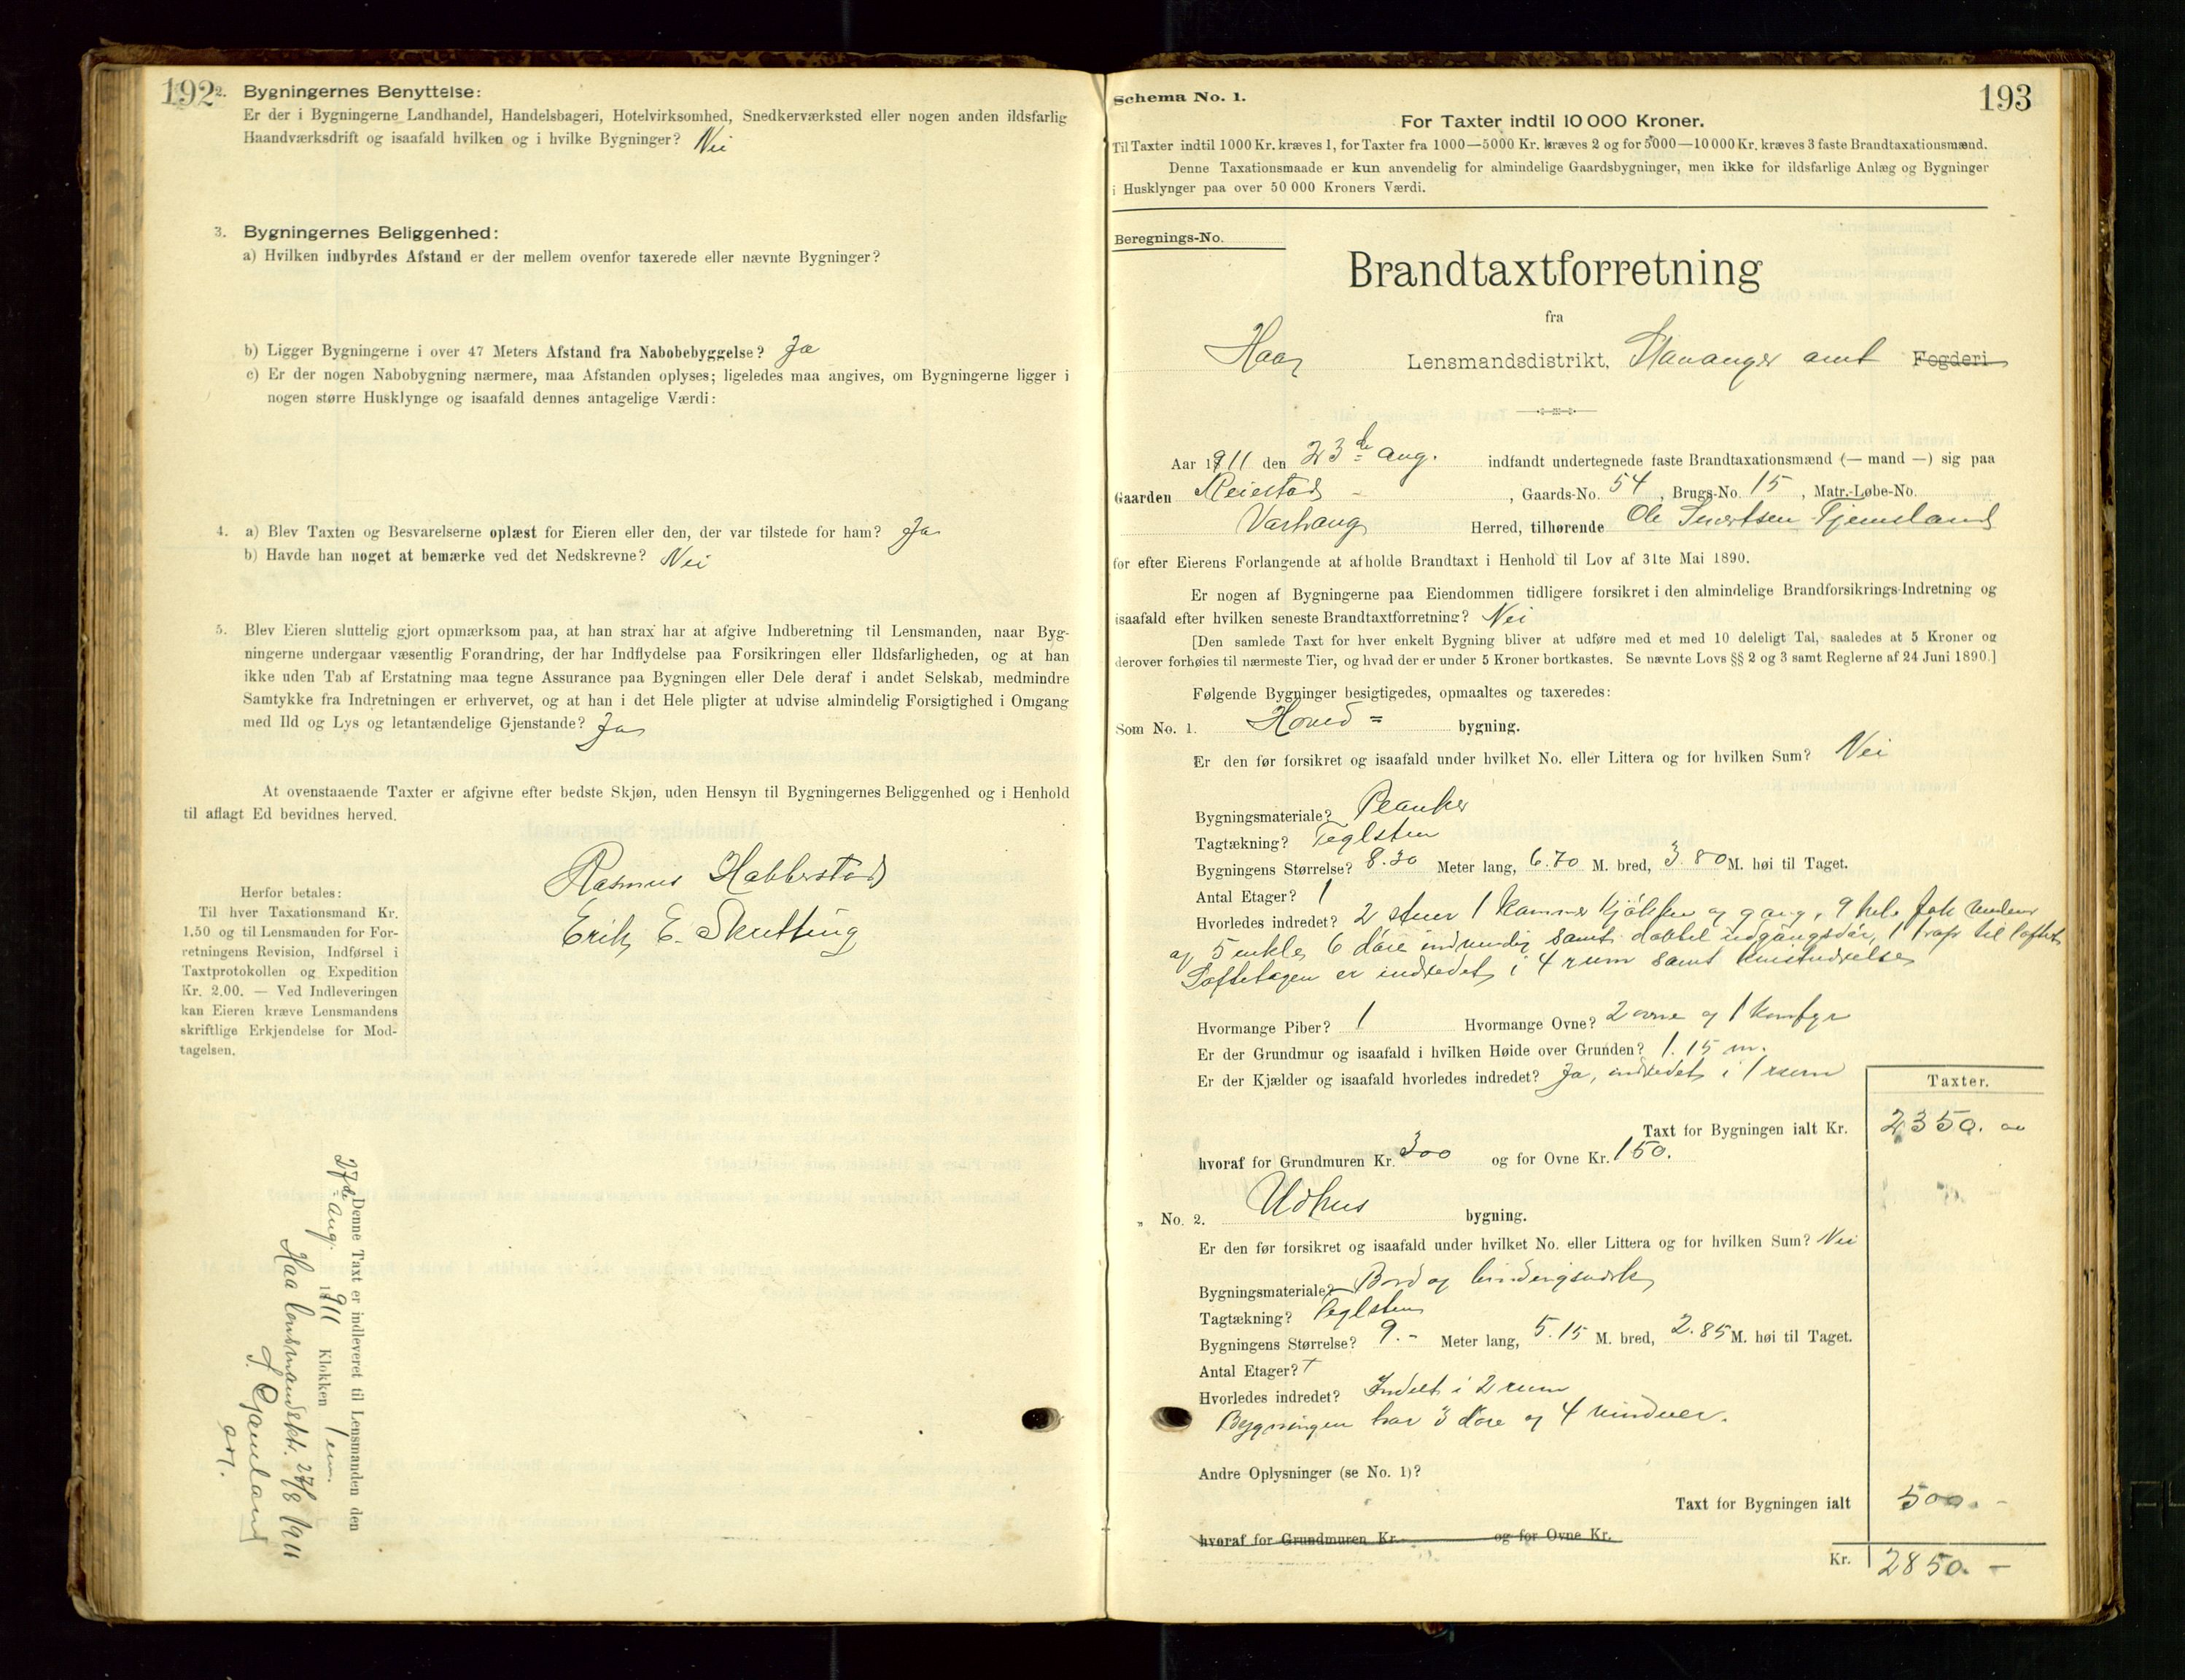 192
2. Bygningernes Benyttelse:
Er der i Bygningerne Landhandel, Handelsbageri, Hotelvirksomhed, Snedkerværksted eller nogen anden ildsfarlig
Haandværksdrift og isaafald hvilken og i hvilke Bygninger? Nei
3. Bygningernes Beliggenhed:
a) Hvilken indbyrdes Afstand er der mellem ovenfor taxerede eller nævnte Bygninger?
b) Ligger Bygningerne i over 47 Meters Afstand fra Nabobebyggelse? Ja
c) Er der nogen Nabobygning nærmere, maa Afstanden oplyses; ligeledes maa angives, om Bygningerne ligger i
nogen større Husklynge og isaafald dennes antagelige Værdi:
4. a) Blev Taxten og Besvarelserne oplæst for Eieren eller den, der var tilstede for ham? Ja
b) Havde han noget at bemærke ved det Nedskrevne? Nei
5. Blev Eieren sluttelig gjort opmærksom paa, at han strax har at afgive Indberetning til Lensmanden, naar Byg-
ningerne undergaar væsentlig Forandring, der har Indflydelse paa Forsikringen eller Ildsfarligheden, og at han
ikke uden Tab af Erstatning maa tegne Assurance paa Bygningen eller Dele deraf i andet Selskab, medmindre
Samtykke fra Indretningen er erhvervet, og at han i det Hele pligter at udvise almindelig Forsigtighed i Omgang
med Ild og Lys og letantændelige Gjenstande? Ja
At ovenstaaende Taxter er afgivne efter bedste Skjøn, uden Hensyn til Bygningernes Beliggenhed og i Henhold
til aflagt Ed bevidnes herved.
Rasmus Habberstad
Erik E. Skretting
Herfor betales:
Til hver Taxationsmand Kr.
1.50 og til Lensmanden for For-
retningens Revision, Indførsel i
Taxtprotokollen og Expedition
Kr. 2.00. — Ved Indleveringen
kan Eieren kræve Lensmandens
skriftlige Erkjendelse for Mod-
tagelsen.
Denne Taxt er indleveret til Lensmanden den
27de aug. 1911 Klokken 1 em.
Haa lensmandskt. 27/8 1911
193
Schema No. 1.
For Taxter indtil 10 000 Kroner.
Til Taxter indtil 1000 Kr. kræves 1, for Taxter fra 1000—5000 Kr. kræves 2 og for 5000—10 000 Kr. kræves 3 faste Brandtaxationsmænd.
Denne Taxationsmaade er kun anvendelig for almindelige Gaardsbygninger, men ikke for ildsfarlige Anlæg og Bygninger
i Husklynger paa over 50 000 Kroners Værdi.
Beregnings-No.
Brandtaxtforretning
fra
Haa Lensmandsdistrikt, Stavanger amt Fogderi
Aar 1911 den 23de aug. indfandt undertegnede faste Brandtaxationsmænd (— mand —) sig paa
Gaarden Reiestad - , Gaards-No. 54, Brugs-No. 15, Matr.-Løbe-No.
Varhaug Herred, tilhørende Ole Tjemsland
for efter Eierens Forlangende at afholde Brandtaxt i Henhold til Lov af 31te Mai 1890.
Er nogen af Bygningerne paa Eiendommen tidligere forsikret i den almindelige Brandforsikrings-Indretning og
isaafald efter hvilken seneste Brandtaxtforretning? Nei
[Den samlede Taxt for hver enkelt Bygning bliver at udføre med et med 10 deleligt Tal, saaledes at 5 Kroner og
derover forhøies til nærmeste Tier, og hvad der er under 5 Kroner bortkastes. Se nævnte Lovs §§ 2 og 3 samt Reglerne af 24 Juni 1890.]
Følgende Bygninger besigtigedes, opmaaltes og taxeredes:
Som No. 1. Hoved = bygning.
Er den før forsikret og isaafald under hvilket No. eller Littera og for hvilken Sum? Nei
Bygningsmateriale? Planker
Tagtækning? Teglsten
Bygningens Størrelse? 8.30 Meter lang, 6.70 M. bred, 3.80 M. høi til Taget.
Antal Etager? 1
Hvorledes indredet? 2 stuer 1 kammer kjøkken og gang, 9 hele fok vinduer
og 5 enkle, 6 døre indvendig samt dobbel udgangsdør, 1 trap til loftet
Loftetagen er indredet i 4 rum samt
Hvormange Piber? 1 Hvormange Ovne? 2 ovne og 1 komfyr
Er der Grundmur og isaafald i hvilken Høide over Grunden? 1.15 m.
Er der Kjælder og isaafald hvorledes indredet? Ja, indredet i 1 rum
Taxter.
Taxt for Bygningen ialt Kr. 2350. 00
hvoraf for Grundmuren Kr. 300 og for Ovne Kr. 150.
" No. 2. Udhus bygning.
Er den før forsikret og isaafald under hvilket No. eller Littera og for hvilken Sum? Nei
Bygningsmateriale? Bord og bindingsverk
Tagtækning? Teglsten
Bygningens Størrelse? 9.- Meter lang, 5.15 M. bred, 2.85 M. høi til Taget.
Antal Etager?
Hvorledes indredet? Indelt i 2 rum
Bygningen har 3 døre og 4 vinduer.
Andre Oplysninger (se No. 1)?
Taxt for Bygningen ialt 500. -
hvoraf for Grundmuren Kr. og for Ovne Kr.
Kr. 2850. -